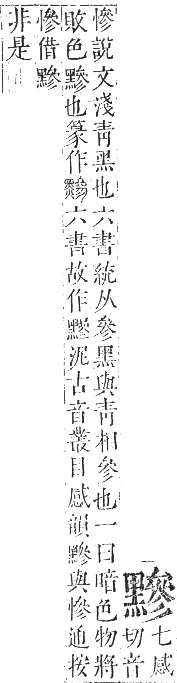 黲
七感
切音
慘說文淺青黑也六書統从參黑與青相參也一曰暗色物將
敗色黲也篆作黲六書故作黲泥古音叢目感韻黲與慘通按
慘借黲
非是